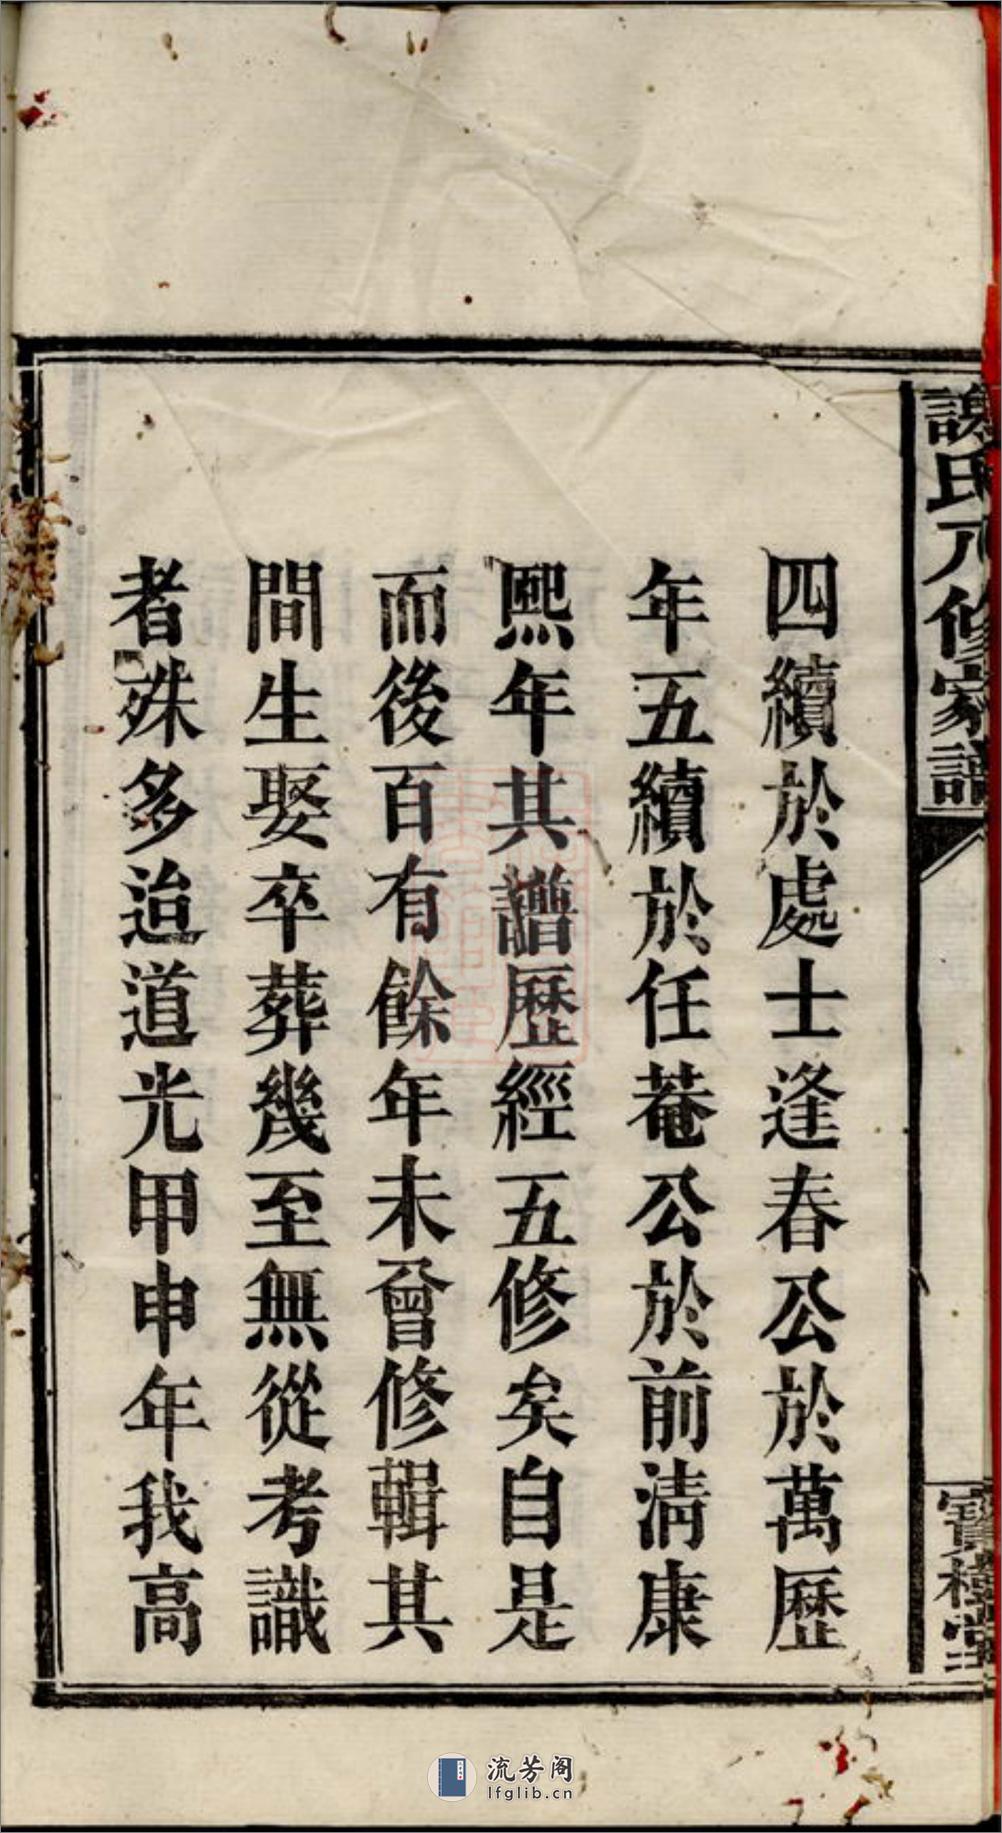 謝氏八修家譜
寶樹堂
四續於處士逢春公於萬歷
年五續於任菴公於前清康
熙年共譜歷經五修矣自是
而後百有餘年未曾修輯其
間生娶卒葬幾至無從考識
者殊多迨道光甲申年我高
流芳阁
lfglib.cn